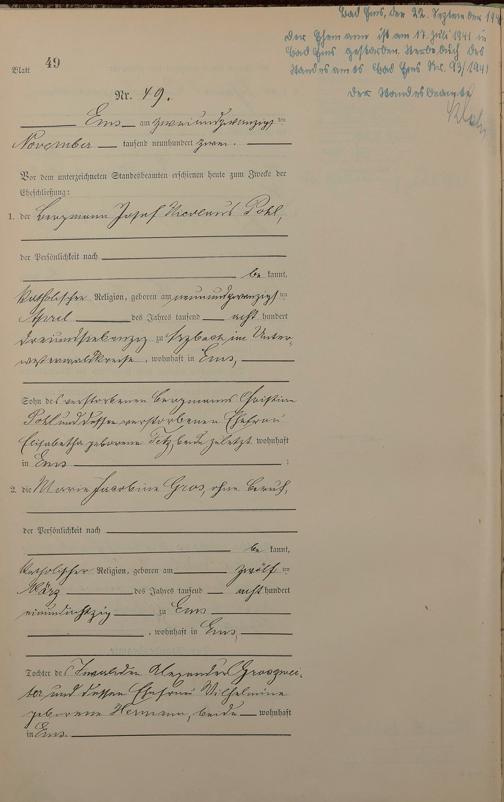 Bad Ems, den 22. September 194
Der Ehemann ist am 17. Juli 1941 in
Bad Ems gestorben. Sterbebuch des
Standesamts Bad Ems Nr. 93/1941
Der Standesbeamte
Blatt 49
Nr. 49.
Ems am zweiundzwanzigsten
November tausend neunhundert zwei.
Vor dem unterzeichneten Standesbeamten erschienen heute zum Zwecke der
Eheschließung:
1. der Bergmann Josef Nicolaus Pohl,
der Persönlichkeit nach
be kannt,
katholischer Religion, geboren am neunundzwanzigsten
April des Jahres tausend acht hundert
dreiundsiebenzig zu Arzbach im Unter-
westerwaldkreise, wohnhaft in Ems,
Sohn des verstorbenen Bergmanns Christian
Pohl und dessen verstorbenen Ehefrau
Elisabetha geborene beide zuletzt wohnhaft
in Ems ;
2. die Maria Jacobine Gros, ohne Beruf,
der Persönlichkeit nach
be kannt,
katholischer Religion, geboren am zwölften
März des Jahres tausend acht hundert
einundachtzig zu Ems
, wohnhaft in Ems,
Tochter des Invaliden Alexander
und dessen Ehefrau Wilhelmine
geborene Hermann, beide wohnhaft
in Ems.